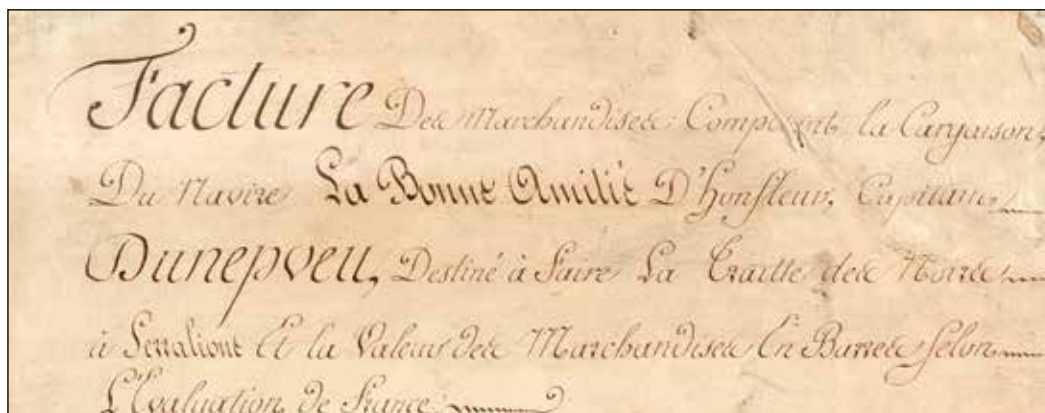 Facture Des Marchandises Composant la Cargaison
Du Navire La Bonne Amitié D'honfleur, Capitaine
Dunepveu, Destiné à Faire La Traitte des Noirs
à Serralione Et la Valeur des Marchandises En Barres selon
L'Evaluation de France